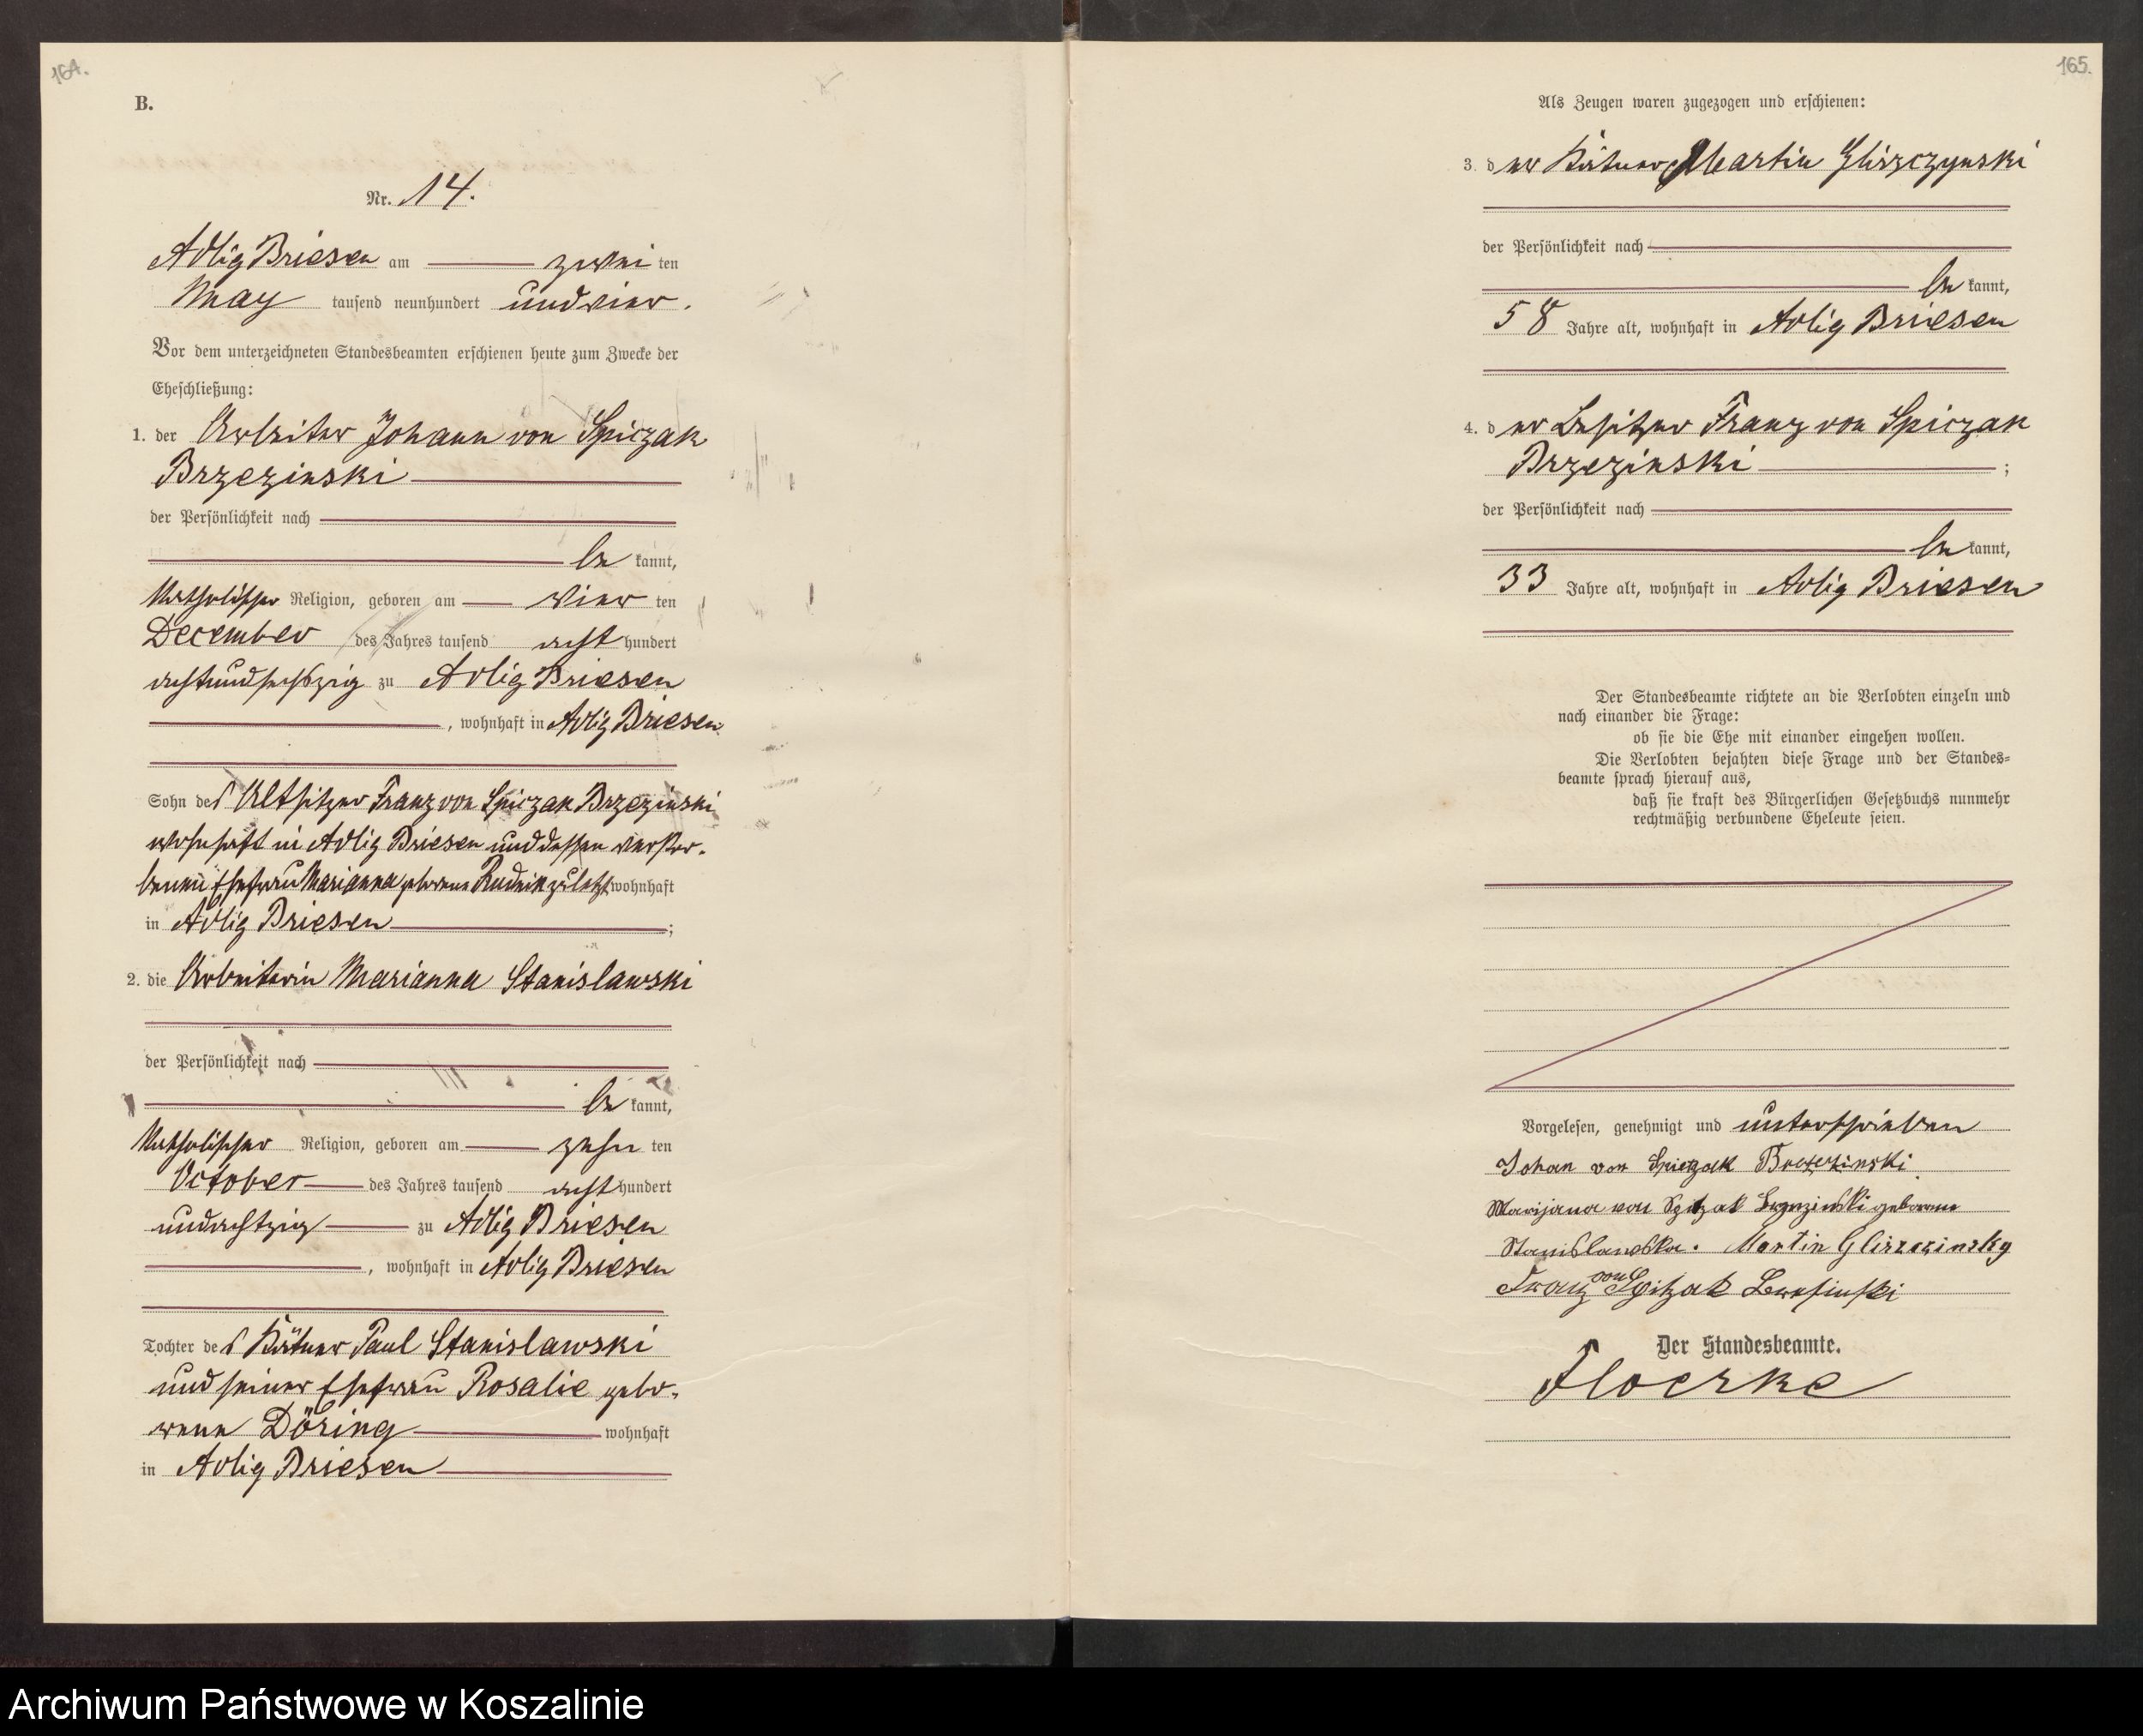 164.
B.
Nr. 14.
Adlig Briesen am zwei ten
May tausend neunhundert und vier.
Vor dem unterzeichneten Standesbeamten erschienen heute zum Zwecke der
Eheschließung:
1. der Arbeiter Johann von Spiczak
Brzezinski
der Persönlichkeit nach
be kannt,
katholischer Religion, geboren am vier ten
December des Jahres tausend acht hundert
achtundsechszig zu Adlig Briesen
, wohnhaft in Adlig Briesen
Sohn des Altsitzer Franz von Spiczak Brzezinski
wohnhaft in Adlig Briesen und dessen verstor-
benen Ehefrau Marianna geborene Rudnik zuletzt wohnhaft
in Adlig Briesen ;
2. die Arbeiterin Marianna Stanislawski
der Persönlichkeit nach
be kannt,
katholischer Religion, geboren am zehn ten
October des Jahres tausend acht hundert
undachtzig zu Adlig Briesen
, wohnhaft in Adlig Briesen
Tochter des Kätner Paul Stanislawski
und seiner Ehefrau Rosalie gebo-
rene Döring wohnhaft
in Adlig Briesen
165.
Als Zeugen waren zugezogen und erschienen:
3. der Kätner Martin Gliszczynski
der Persönlichkeit nach
be kannt,
58 Jahre alt, wohnhaft in Adlig Briesen
4. der Besitzer Franz von Spiczak
Brzezinski ;
der Persönlichkeit nach
be kannt,
33 Jahre alt, wohnhaft in Adlig Briesen
Der Standesbeamte richtete an die Verlobten einzeln und
nach einander die Frage:
ob sie die Ehe mit einander eingehen wollen.
Die Verlobten bejahten diese Frage und der Standes-
beamte sprach hierauf aus,
daß sie kraft des Bürgerlichen Gesetzbuchs nunmehr
rechtmäßig verbundene Eheleute seien.
Vorgelesen, genehmigt und unterschrieben
Johan von Spiczak Brzezinski
Marijana von geborene
Stanislawska. Martin Gliszczinsky
Franz von Spitzak
Der Standesbeamte.
Floerke
Archiwum Państwowe w Koszalinie